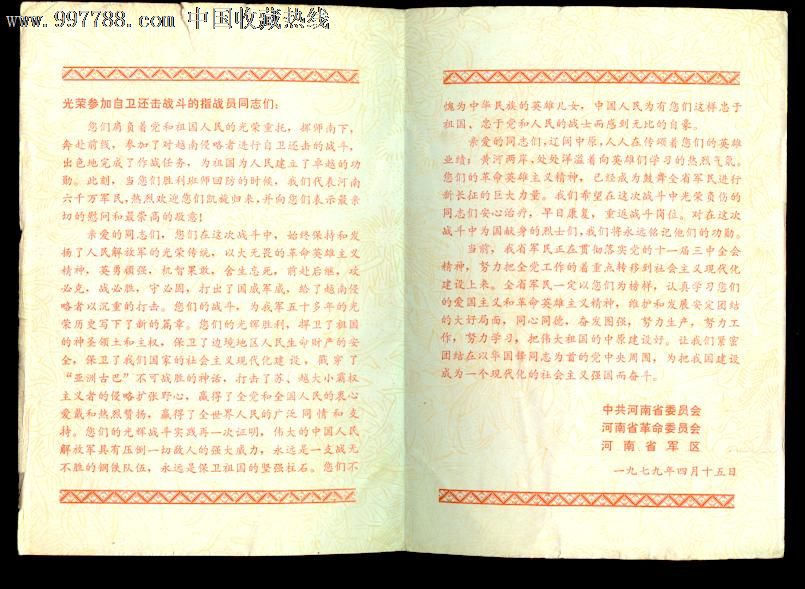 www.997788.com 中国收藏热线
光荣参加自卫还击战斗的指战员同志们：
您们肩负着党和祖国人民的光荣重托，挥师南下，
奔赴前线，参加了对越南侵略者进行自卫还击的战斗，
出色地完成了作战任务，为祖国为人民建立了卓越的功
勋。此刻，当您们胜利班师回防的时候，我们代表河南
六千万军民，热烈欢迎您们凯旋归来，并向您们表示最亲
切的慰问和最崇高的敬意！
亲爱的同志们，您们在这次战斗中，始终保持和发
扬了人民解放军的光荣传统，以大无畏的革命英雄主义
精神，英勇顽强，机智果敢，舍生忘死，前赴后继，攻
必克，战必胜，守必固，打出了国威军威，给了越南侵
略者以沉重的打击。您们的战斗，为我军五十多年的光
荣历史写下了新的篇章。您们的光辉胜利，捍卫了祖国
的神圣领土和主权，保卫了边境地区人民生命财产的安
全，保卫了我们国家的社会主义现代化建设，戳穿了
“亚洲古巴”不可战胜的神话，打击了苏、越大小霸权
主义者的侵略扩张野心，赢得了全党和全国人民的衷心
爱戴和热烈赞扬，赢得了全世界人民的广泛同情和支
持。您们的光辉战斗实践再一次证明，伟大的中国人民
解放军具有压倒一切敌人的强大威力，永远是一支战无
不胜的钢铁队伍，永远是保卫祖国的坚强柱石。您们不
愧为中华民族的英雄儿女，中国人民为有您们这样忠于
祖国、忠于党和人民的战士而感到无比的自豪。
亲爱的同志们，辽阔中原，人人在传颂着您们的英雄
业绩；黄河两岸，处处洋溢着向英雄们学习的热烈气氛。
您们的革命英雄主义精神，已经成为鼓舞全省军民进行
新长征的巨大力量。我们希望在这次战斗中光荣负伤的
同志们安心治疗，早日康复，重返战斗岗位。对在这次
战斗中为国献身的烈士们，我们将永远铭记他们的功勋。
当前，我省军民正在贯彻落实党的十一届三中全会
精神，努力把全党工作的着重点转移到社会主义现代化
建设上来。全省军民一定以您们为榜样，认真学习您们
的爱国主义和革命英雄主义精神，维护和发展安定团结
的大好局面，同心同德，奋发图强，努力生产，努力工
作，努力学习，把伟大祖国的中原建设好。让我们紧密
团结在以华国锋同志为首的党中央周围，为把我国建设
成为一个现代化的社会主义强国而奋斗。
中共河南省委员会
河南省革命委员会
河南省军区
一九七九年四月十五日